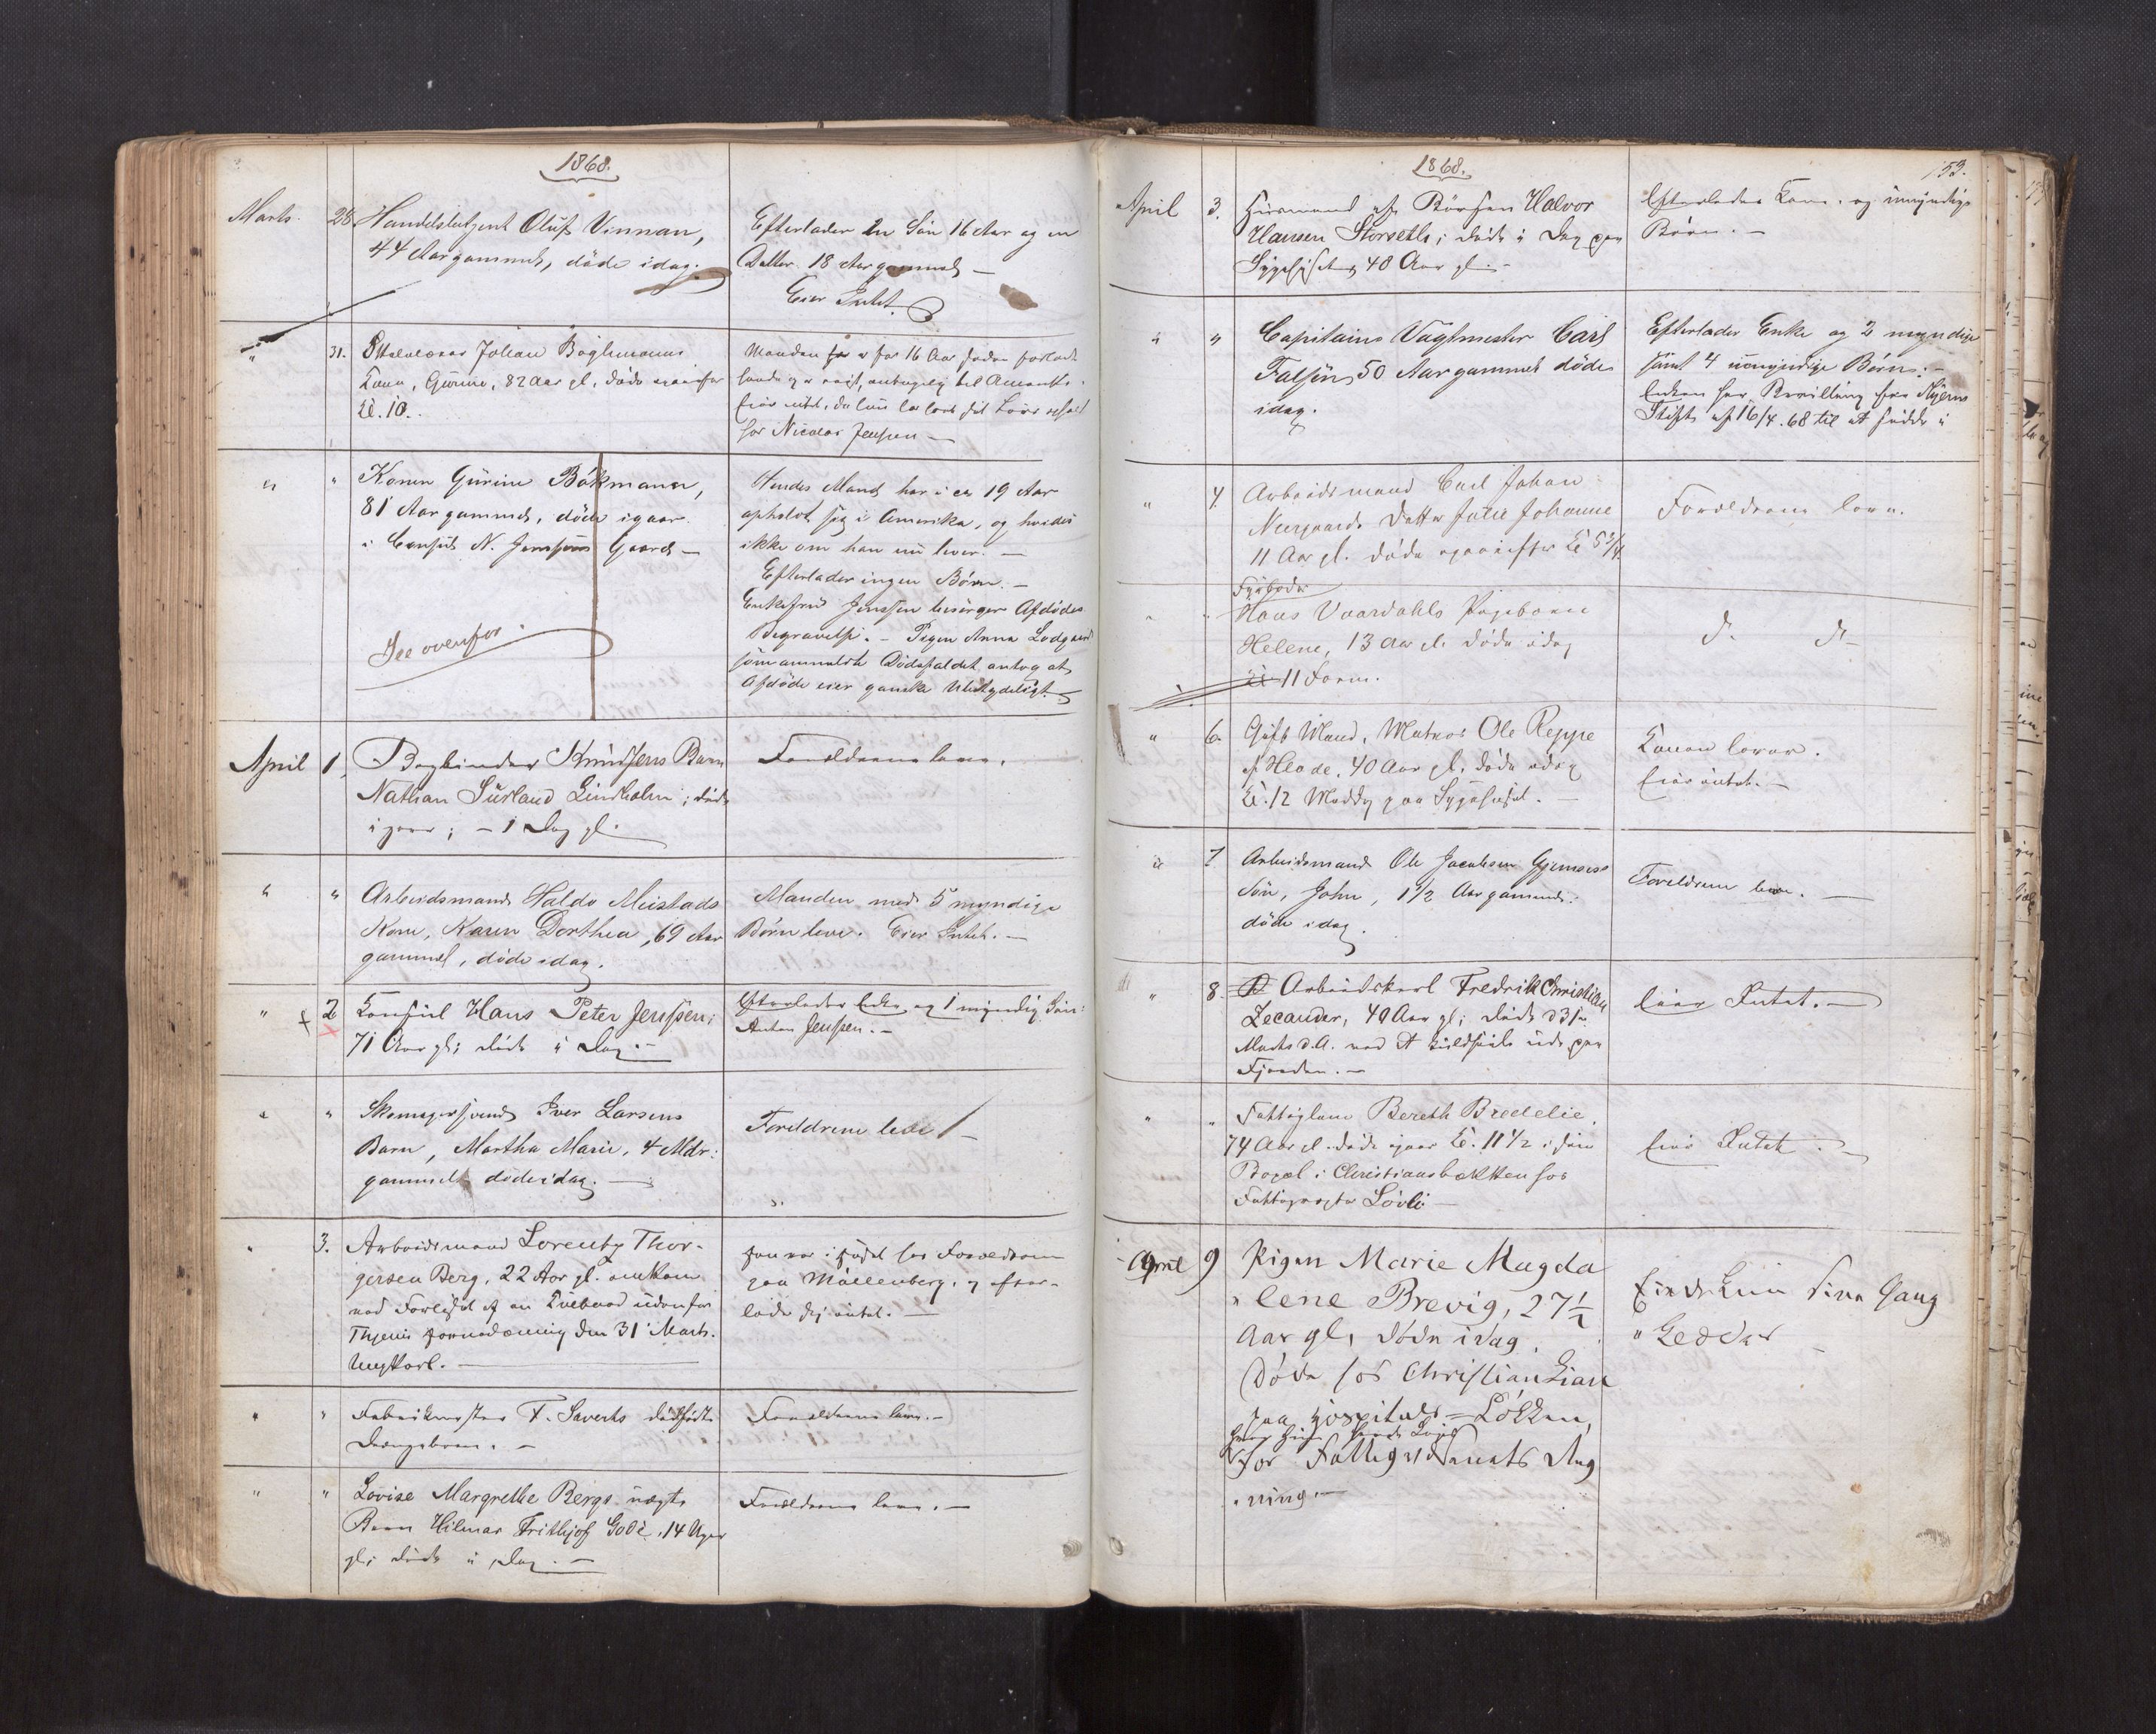 1868.
Marts. 28. Handelsbetjent Oluf Vinnan,
44 Aar gammel, döde idag.
Efterlader en Sön 16 Aar og en
Datter 18 Aar gammel —
Eier Intet.
" 31. Johan Böghmanns
Kone, Gurine, 82 Aar gl. döde
Kl. 10.
Manden for 16 Aar siden
til Amerika.
hos Nicolai Jenssen —
" " Konen Gurine Bökmann,
81 Aar gammel, döde igaar
i Consul N. Jenssens Gaard —
See ovenfor.
Hendes Mand har i ca 19 Aar
opholdt sig i Amerika, og hvides
ikke om han nu lever. —
Efterlader ingen Börn. —
Enkefru Jenssen besörger Afdödes
Begravelse. — Pigen Anna Lodgaard
som anmeldte Dödsfaldet antog at
Afdöde eier ganske Ubetydeligt.
April 1. Bogbinder Knudsens Barn
Nathan Lindholm; död
igaar; — 1 Dag gl.
Forældrene leve.
" " Arbeidsmand Haldo Meistads
Kone, Karen Dorthea, 69 Aar
gammel, döde idag.
Manden med 5 myndige
Börn leve. Eier Intet. —
" 2 Konsul Hans Peter Jenssen;
71 Aar gl; död i Dag. —
Efterlader Enke og 1 myndig Sön:
Anton Jenssen. —
" " Skomagersvend Iver Larsens
Barn, Martha Marie, 4 Mdr:
gammel döde idag. —
Foreldrene leve —
" 3. Arbeidsmand Lorentz Thor-
gersen Berg, 22 Aar gl. omkom
ved Forliset af en udenfor
den 31 Marts.
Ungkarl. —
Han var i hos Forældrene
paa Möllenberg, og efter-
lod sig intet. —
" " Fabrikmester T. Saverts dödfödte
Drengebarn. —
Forældrene leve. —
" " Lovise Margrethe Bergs uægte
Barn Hilmar Frithjof Gode, 14 Uger
gl; död i Dag. —
Forældrene leve. —
1868.
153.
April 3. Huusmand af Börsen Halvor
Hansen Storsethe; död i Dag paa
Sygehuset, 48 Aar gl. —
Efterlader Kone og umyndige
Börn. —
" " Capitains Vagtmester Carl
Falsen, 50 Aar gammel döde
idag.
Efterlader Enke og 2 myndige
samt 4 umyndige Börn. —
Enken har Bevilling fra
Stift af 16/4. 68 til at sidde i
" 4. Arbeidsmand Carl Johan
Neergaards Datter Julie Johanne
11 Aar gl. döde Kl 5 3/4
Forældrene leve.
" " Fyrböder
Hans Vaardahls Pigebarn
Helene, 13 Aar gl. döde idag
Kl 11 Form.
d. d. —
" 6. Gift Mand, Matros Ole Reppe
af Hlade, 40 Aar gl. döde idag
Kl. 12 Middag paa Sygehuset. —
Konen lever.
Eier intet. —
" 7 Arbeidsmand Ole Jacobsen
Sön, John, 1 1/2 Aar gammel.
döde idag.
Foreldrene leve. —
" 8. Arbeidskarl Fredrik Christian
Zecander, 40 Aar gl; död d 31te
Marts d.A. ved et ude paa
Fjorden. —
Eier Intet. —
" " Fattiglem Bereth Bredelie,
74 Aar gl. döde igaar Kl. 11 1/2 i sin
Bopæl i Christiansbakken hos
Fattigvogter Lövli —
Eier Intet. —
April 9 Pigen Marie Magda
" lene Brevig, 27 1/2
Aar gl, döde idag.
Döde hos Christian Lian
paa Hospitals = Lökken,
for Fattigvæsenets Reg
" ning. —
Eiede kun sine Gang
" Klæder —